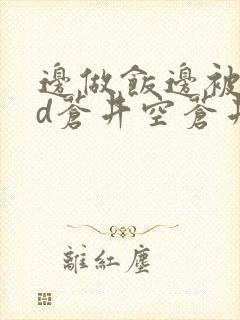 邊做飯邊被
d蒼井空蒼井
離紅塵